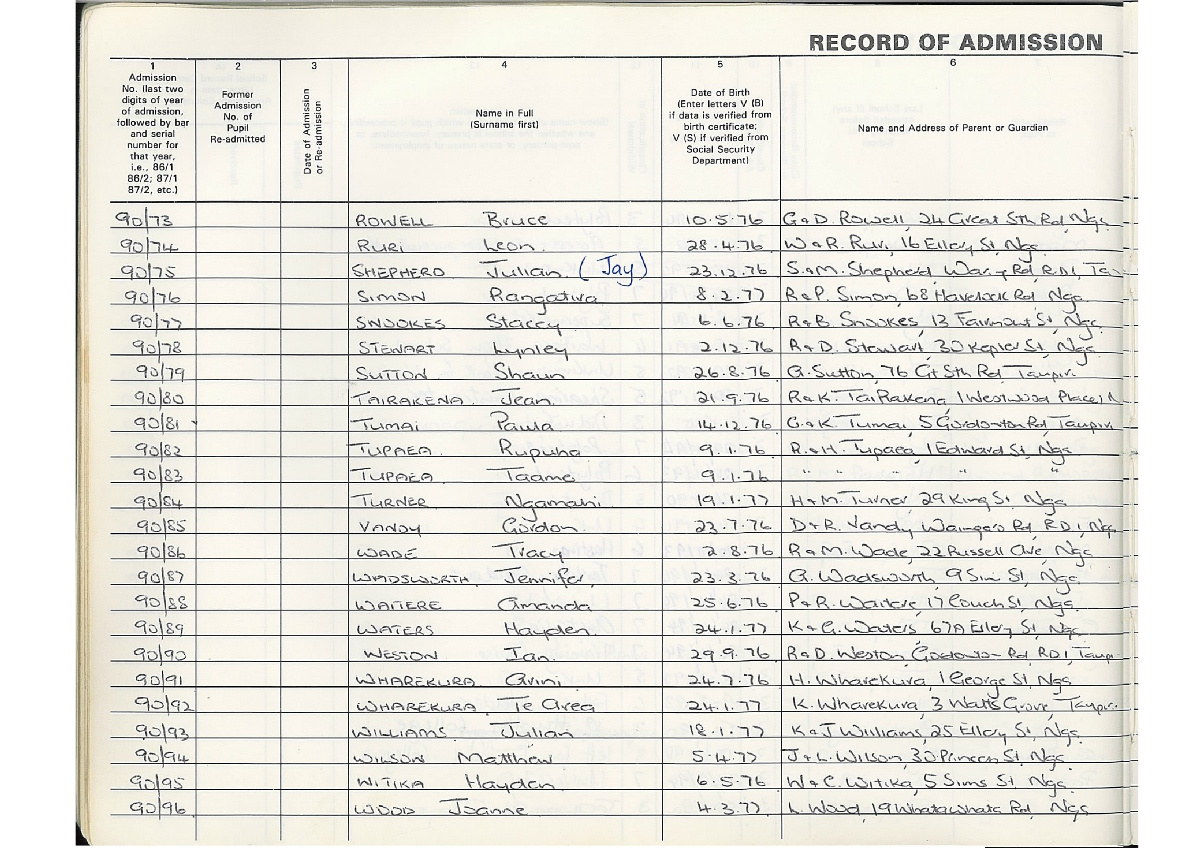 RECORD OF ADMISSION
1 2 3 4 5 6
Admission
No. (last two
digits of year
of admission,
followed by bar
and serial
number for
that year,
i.e., 86/1
86/2; 87/1
87/2, etc.)
Former
Admission
No. of
Pupil
Re-admitted
Date of Admission
or Re-admission
Name in Full
(Surname first)
Date of Birth
(Enter letters V (B)
if data is verified from
birth certificate;
V (S) if verified from
Social Security
Department)
Name and Address of Parent or Guardian
90/73 ROWELL Bruce 10.5.76 G & D. Rowell, 24 Great Sth Rd, Nga.
90/74 RURI Leon. 28.4.76 W & R. Ruri, 16 Ellery St, Nga.
90/75 SHEPHERD Julian (Jay) 23.12.76 S & M. Shepherd Rd RD1,
90/76 SIMON 8.2.77 R & P. Simon, 68 Havelock Rd, Nga.
90/77 SNOOKES Stacey 6.6.76 R & B. Snookes, 13 Fairmont St, Nga.
90/78 STEWART Lynley 2.12.76 R & D. Stewart, 30 Kepler St, Nga.
90/79 SUTTON Shaun 26.8.76 G. Sutton, 76 Gt Sth Rd Taupiri.
90/80 TAIRAKENA Jean. 21.9.76 R & K. TaiRakena, 1 Westwood Place, N
90/81 TUMAI Paula 14.12.76 G & K Tumai, 5 Gordonton Rd, Taupiri
90/82 TUPAEA. Rupuha 9.1.76 R. & H. Tupaea, 1 Edward St, Nga
90/83 TUPAEA Taame 9.1.76 " " " " "
90/84 TURNER Ngamahi 19.1.77 H & M. Turner 29 King St Nga.
90/85 VANDY Gordon 23.7.76 D & R. Vandy, Rd, RD1, Nga
90/86 WADE Tracy 2.8.76 R & M. Wade, 22 Russell Ave, Nga.
90/87 WADSWORTH Jennifer. 23.3.76 G. Wadsworth, 9 Sim St, Nga.
90/88 WAITERE Amanda 25.6.76 P & R. Waitere, 17 Couch St, Nga.
90/89 WATERS Hayden. 24.1.77 K & G. Waters 67A Ellery St, Nga.
90/90 WESTON Ian. 29.9.76 R & D. Weston, Gordonton Rd, RD1, Taup
90/91 WHAREKURA Arini 24.7.76 H. Wharekura, 1 George St, Nga.
90/92 WHAREKURA. Te Area 24.1.77 K. Wharekura, 3 Watts Grove, Taupiri.
90/93 WILLIAMS. Julian 18.1.77 K & J Williams, 25 Ellery St, Nga.
90/94 WILSON Matthew 5.4.77 J & L. Wilson, 30 Princes St, Nga.
90/95 WITIKA Hayden 6.5.76 W & C. Witika, 5 Sims St, Nga.
90/96 WOOD Joanne. 4.3.77 L. Wood, 19 Whatawhata Rd, Nga